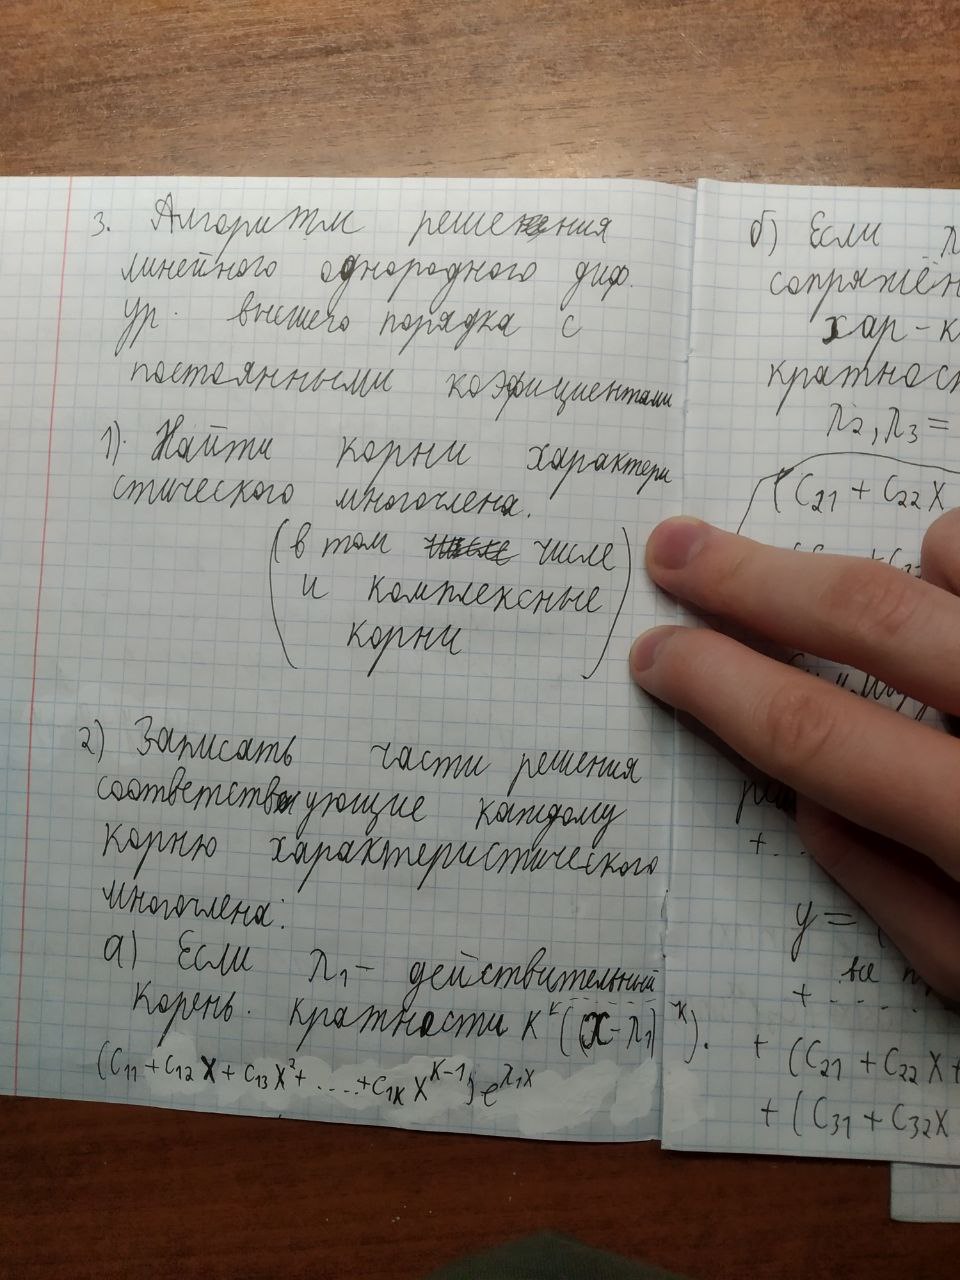 3. Алгоритм решения
линейного однородного диф.
ур. высшего порядка с
постоянными коэфициентами
1). Найти корни характери
стического многочлена.
(в том числе
и комплексные
корни)
2) Записать части решения
соответствующие каждому
корню характеристического
многочлена:
а) Если λ₁ - действительный
корень. кратности к ((x-λ₁)ᵏ).
(C₁₁ + C₁₂X + C₁₃X² + ... + C₁ₖXᵏ⁻¹) e^λ₁x
б) Если λ
сопряжён
хар-к
кратност
λ₂, λ₃ =
(C₂₁ + C₂₂X
+ ..
y = (
все
+ ...
+ (C₂₁ + C₂₂X +
+ (C₃₁ + C₃₂X